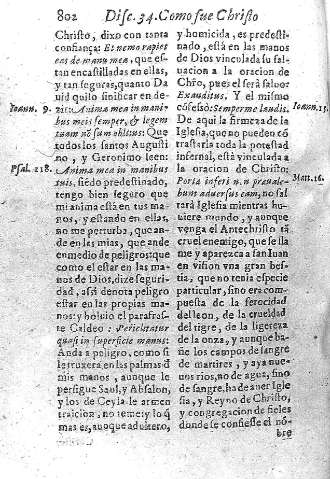 802 Disc. 34. Como fue Christo
Christo, dixo con tanta
confiança: Et nemo rapiet
eas de manu mea, que es-
tan encastilladas en ellas,
y tan seguras, quanto Da
uid quiso sinificar en de-
Ioann. 9. zir: Anima mea in mani-
bus meis semper, & legem
tuam nõ sum oblitus: Que
todos los santos Augusti
no, y Geronimo leen:
Psal. 118. Anima mea in manibus
tuis, siẽdo predestinado,
tengo bien seguro que
mi anima està en tus ma-
nos, y estando en ellas,
no me perturba, que an-
de en las mias, que ande
en medio de peligros: que
como el estar en las ma-
nos de Dios, dize seguri-
dad, assi denota peligro
estar en las propias ma-
nos: y boluio el parafras-
te Caldeo: Periclitatur
quasi in superficie manus:
Anda a peligro, como si
le truxera en las palmas d
mis manos, aunque le
persigue Saul, y Absalon,
y los de Ceyla le armen
traicion, no teme: y lo q̃
mas es, aunque adultero,
y homicida, es predesti-
nado, està en las manos
de Dios vinculada su sal-
uacion a la oracion de
Chro, pues el serà saluo:
Exauditus. Y el mismo
cõfessò: Semper me audis. Ioann. 11.
De aqui la firmeza de la
Iglesia, que no pueden cõ
trastarla toda la potestad
infernal, està vinculada a
la oracion de Christo:
Porta inferi n.n præuale- Matt. 16.
bunt aduersus eam, no fal
tarà Iglesia mientras hu-
uiere mundo, y aunque
venga el Antechristo tã
cruel enemigo, que se lla
me y aparezca a san Iuan
en vision vna gran bes-
tia, que no tenia especie
particular, sino era com-
puesta de la ferocidad
del leon, de la crueldad
del tigre, de la ligereza
de la onza, y aunque ba-
ñe los campos de sangre
de martires, y aya nue-
uos rios, no de agua, sino
de sangre, ha de auer Igle
sia, y Reyno de Christo,
y congregacion de fieles
donde se confiesse el nõ-
bre